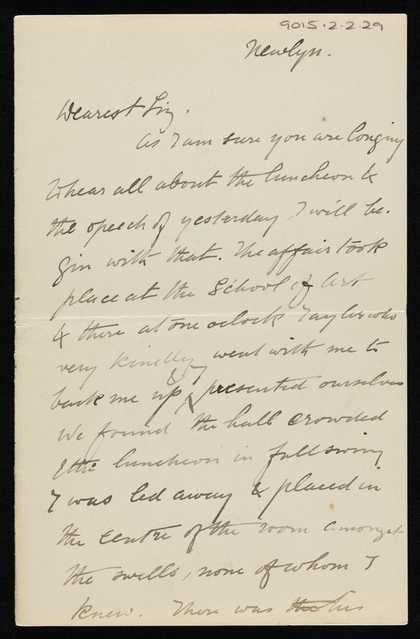 9015.2.2.29
Newlyn.
Dearest Liz.
As I am sure you are longing
to hear all about the luncheon &
the speech of yesterday I will be.
gin with that. The affair took
place at the School of Art
& there at one oclock Taylor who
very kindly went with me to
back me up, presented ourselves
We found the hall crowded
& the luncheon in full swing
I was led away & placed in
the centre of the room amongst
the swells, none of whom I
knew. There was the his